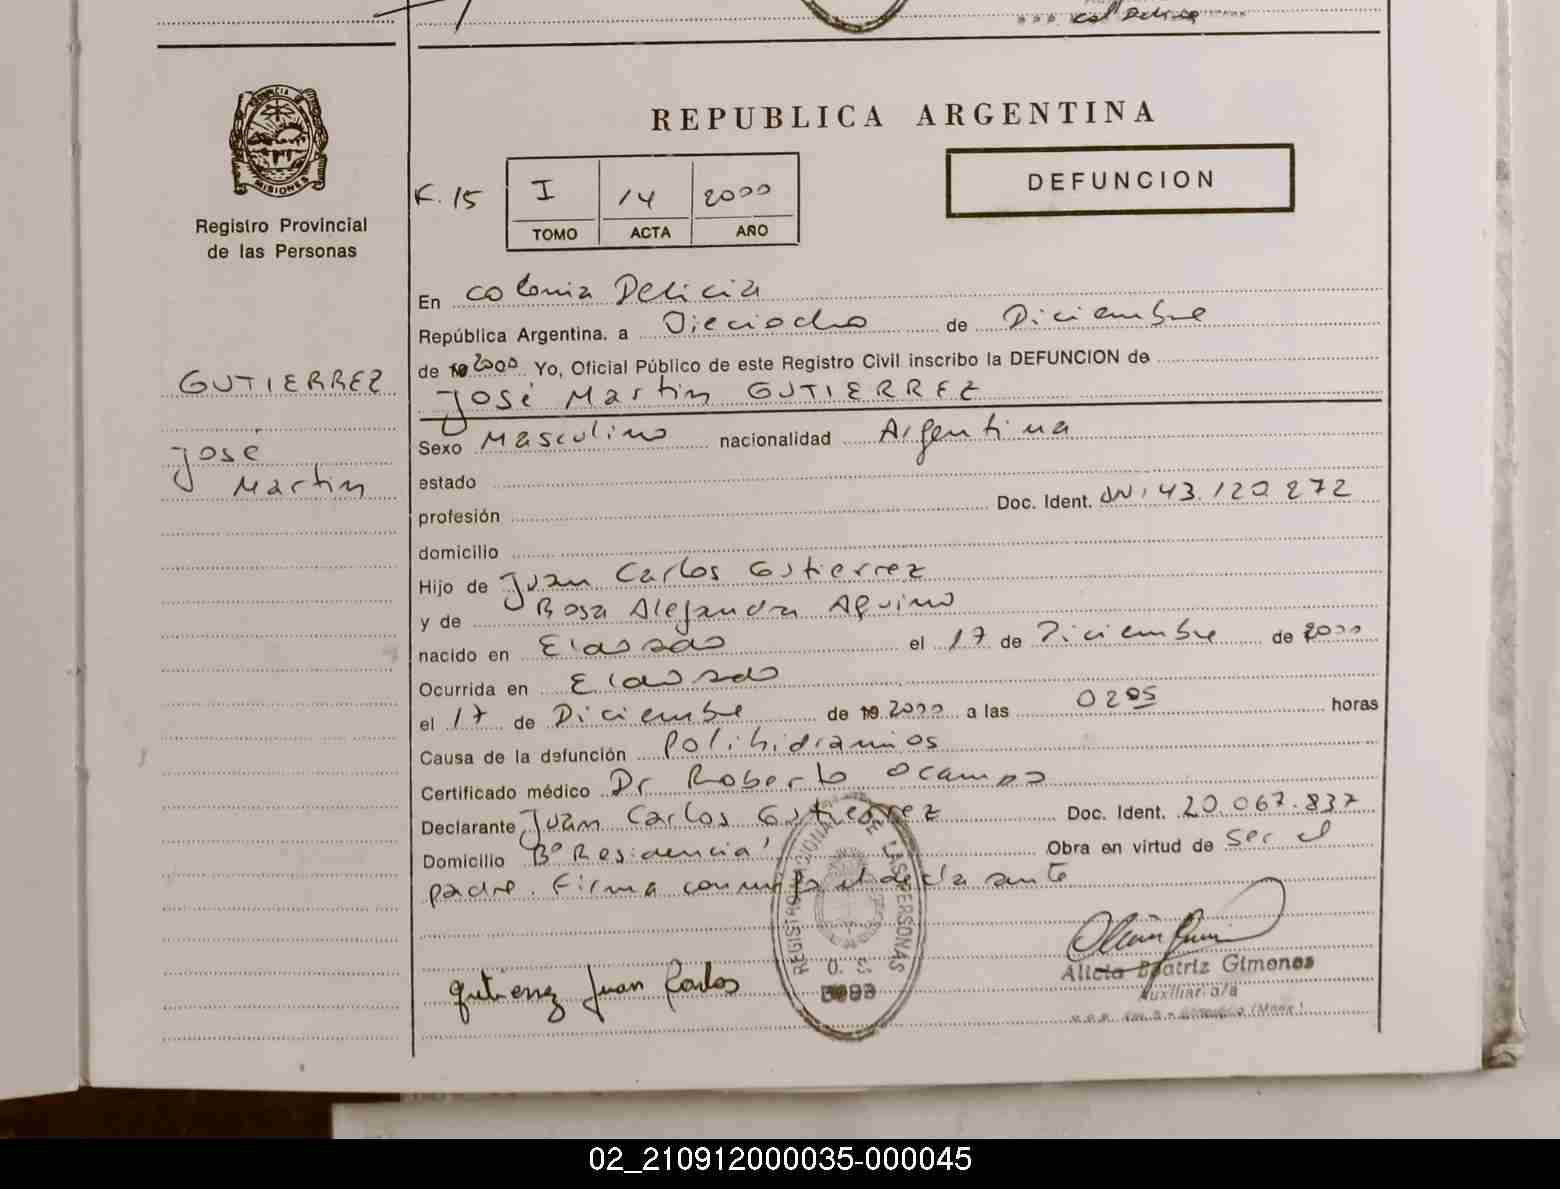 Col Delicia
PROVINCIA DE
MISIONES
Registro Provincial
de las Personas
REPUBLICA ARGENTINA
K. 15
I 14 2000
TOMO ACTA AÑO
DEFUNCION
GUTIERREZ
José
Martin
En Colonia Delicia
República Argentina, a Dieciocho de Diciembre
de 19 2000 Yo, Oficial Público de este Registro Civil inscribo la DEFUNCION de
José Martin GUTIERREZ
Sexo Masculino nacionalidad Argentina
estado
profesión Doc. Ident. DNI 43.120.272
domicilio
Hijo de Juan Carlos Gutierrez
y de Rosa Alejandra Aquino
nacido en Eldorado el 17 de Diciembre de 2000
Ocurrida en Eldorado
el 17 de Diciembre de 19 2000 a las 0205 horas
Causa de la defunción Polihidramios
Certificado médico Dr Roberto Ocampo
Declarante Juan Carlos Gutierrez Doc. Ident. 20.067.837
Domicilio Bº Residencial Obra en virtud de Ser el
padre. Firma conmigo el declarante
REGISTRO NACIONAL DE LAS PERSONAS
Gutierrez Juan Carlos
Alicia Beatriz Gimenes
Auxiliar a/a
02_210912000035-000045